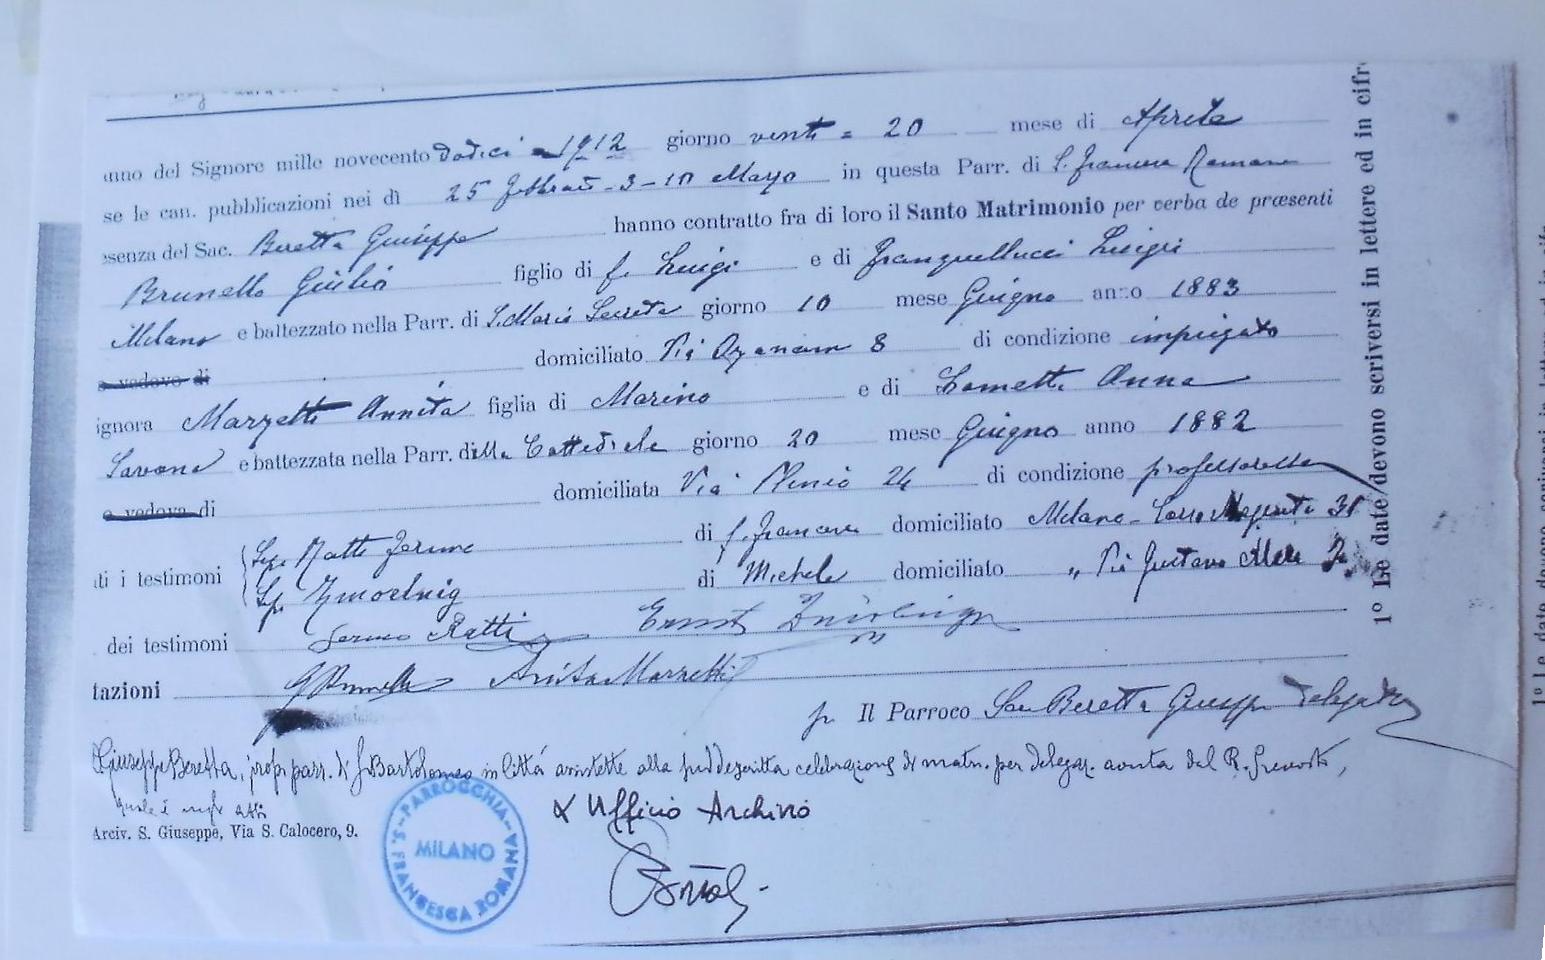 anno del Signore mille novecento dodici = 1912 giorno venti = 20 mese di Aprile
se le can. pubblicazioni nei dì 25 febbraio - 3 - 10 Marzo in questa Parr. di S. Francesca Romana
senza del Sac. Beretta Giuseppe hanno contratto fra di loro il Santo Matrimonio per verba de præsenti
Brunello Giulio figlio di f. Luigi e di Franquellucci Luigia
Milano e battezzato nella Parr. di S. Maria Secreta giorno 10 mese Giugno anno 1883
o vedovo di domiciliato Via Ozanam 8 di condizione impiegato
ignora Marzetti Annita figlia di Marino e di Anna
Savona e battezzata nella Parr. della Cattedrale giorno 20 mese Giugno anno 1882
o vedova di domiciliata Via Plinio 24 di condizione professoressa
ti i testimoni Ratti di f. domiciliato Milano - Corso Magenta 31
di Michele domiciliato „ Via Gustavo
dei testimoni Ratti Ernst
tazioni G Brunello Anita Marzetti
p. Il Parroco Sac Beretta Giuseppe delegato
Giuseppe Beretta, parr. di S. Bartolomeo in Città assistette alla suddescritta celebrazione di matr. per delegaz. avuta dal R. Prevosto,
quale è negli atti
Arciv. S. Giuseppe, Via S. Calocero, 9.
Ufficio Archivio
PARROCCHIA S. FRANCESCA ROMANA
MILANO
1º Le date devono scriversi in lettere ed in cifr
1º Le date devono scriversi in lettere ed in cifr